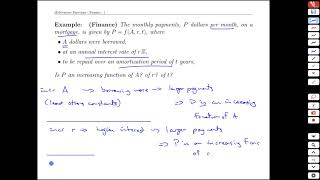 Multivariable Functions - Number - 1
Example: (Finance) The monthly payments, P dollars per month, on a
mortgage, is given by P = f(A, r, t), where
• A dollars were borrowed,
• at an annual interest rate of r %,
• to be repaid over an amortization period of t years.
Is P an increasing function of A? of r? of t?
incr A → borrowing more → larger payments
(leave others constants) ⇒ P is an increasing
function of A
incr r → higher interest → larger payments
⇒ P is an increasing func
of r.